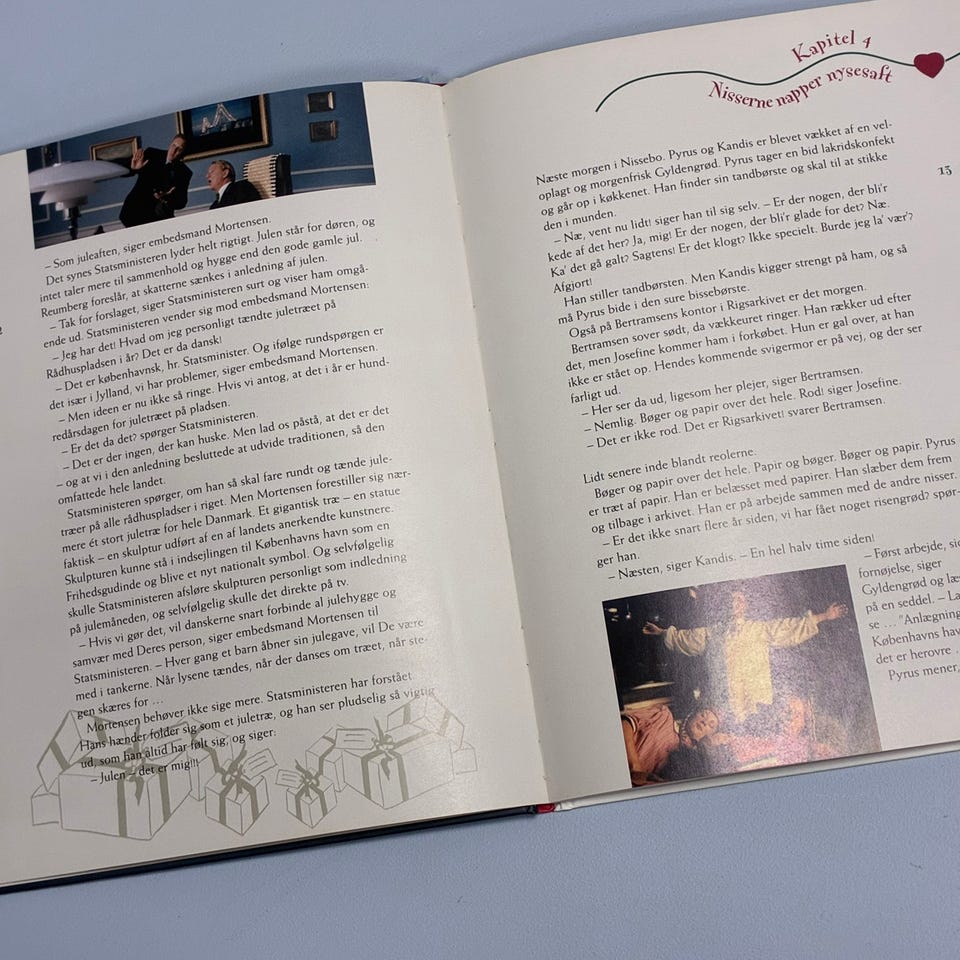 – Som juleaften, siger embedsmand Mortensen.
Det synes Statsministeren lyder helt rigtigt. Julen står for døren, og
intet taler mere til sammenhold og hygge end den gode gamle jul.
Reumberg foreslår, at skatterne sænkes i anledning af julen.
– Tak for forslaget, siger Statsministeren surt og viser ham omgå-
ende ud. Statsministeren vender sig mod embedsmand Mortensen:
– Jeg har det! Hvad om jeg personligt tændte juletræet på
Rådhuspladsen i år? Det er da dansk!
– Det er københavnsk, hr. Statsminister. Og ifølge rundspørgen er
det især i Jylland, vi har problemer, siger embedsmand Mortensen.
– Men ideen er nu ikke så ringe. Hvis vi antog, at det i år er hund-
redårsdagen for juletræet på pladsen.
– Er det da det? spørger Statsministeren.
– Det er der ingen, der kan huske. Men lad os påstå, at det er det
– og at vi i den anledning besluttede at udvide traditionen, så den
omfattede hele landet.
Statsministeren spørger, om han så skal fare rundt og tænde jule-
træer på alle rådhuspladser i riget. Men Mortensen forestiller sig nær-
mere ét stort juletræ for hele Danmark. Et gigantisk træ – en statue
faktisk – en skulptur udført af en af landets anerkendte kunstnere.
Skulpturen kunne stå i indsejlingen til Københavns havn som en
Frihedsgudinde og blive et nyt nationalt symbol. Og selvfølgelig
skulle Statsministeren afsløre skulpturen personligt som indledning
på julemåneden, og selvfølgelig skulle det direkte på tv.
– Hvis vi gør det, vil danskerne snart forbinde al julehygge og
samvær med Deres person, siger embedsmand Mortensen til
Statsministeren. – Hver gang et barn åbner sin julegave, vil De være
med i tankerne. Når lysene tændes, når der danses om træet, når ste-
gen skæres for …
Mortensen behøver ikke sige mere. Statsministeren har forstået.
Hans hænder folder sig som et juletræ, og han ser pludselig så vigtig
ud, som han altid har følt sig, og siger:
– Julen – det er mig!!!
Kapitel 4
Nisserne napper nysesaft
Næste morgen i Nissebo. Pyrus og Kandis er blevet vækket af en vel-
oplagt og morgenfrisk Gyldengrød. Pyrus tager en bid lakridskonfekt
og går op i køkkenet. Han finder sin tandbørste og skal til at stikke
den i munden.
– Næ, vent nu lidt! siger han til sig selv. – Er der nogen, der bli'r
kede af det her? Ja, mig! Er der nogen, der bli'r glade for det? Næ.
Ka' det gå galt? Sagtens! Er det klogt? Ikke specielt. Burde jeg la' vær'?
Afgjort!
Han stiller tandbørsten. Men Kandis kigger strengt på ham, og så
må Pyrus bide i den sure bissebørste.
Også på Bertramsens kontor i Rigsarkivet er det morgen.
Bertramsen sover sødt, da vækkeuret ringer. Han rækker ud efter
det, men Josefine kommer ham i forkøbet. Hun er gal over, at han
ikke er stået op. Hendes kommende svigermor er på vej, og der ser
farligt ud.
– Her ser da ud, ligesom her plejer, siger Bertramsen.
– Nemlig. Bøger og papir over det hele. Rod! siger Josefine.
– Det er ikke rod. Det er Rigsarkivet! svarer Bertramsen.
Lidt senere inde blandt reolerne.
Bøger og papir over det hele. Papir og bøger. Bøger og papir. Pyrus
er træt af papir. Han er belæsset med papirer. Han slæber dem frem
og tilbage i arkivet. Han er på arbejde sammen med de andre nisser.
– Er det ikke snart flere år siden, vi har fået noget risengrød? spør-
ger han.
– Næsten, siger Kandis. – En hel halv time siden!
– Først arbejde, si
fornøjelse, siger
Gyldengrød og læ
på en seddel. – La
se … "Anlægning
Københavns hav
det er herovre .
Pyrus mener,
13